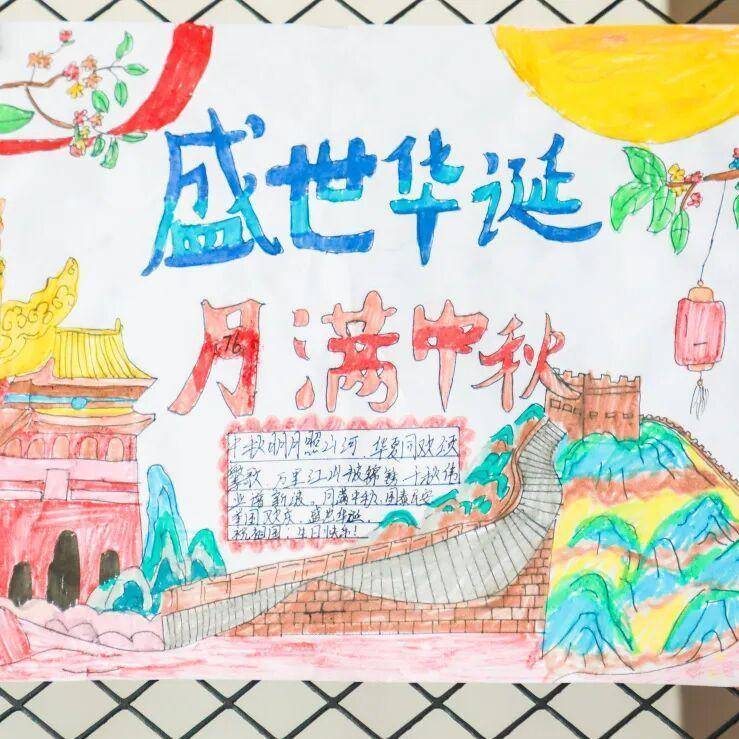 盛世华诞
月满中秋
76
中秋明月照山河 华夏同欢颂
繁歌 万里江山披锦绣 千秋伟
业谱新 。月满中秋,国泰民安
举国欢庆,盛世华诞,
祝祖国:生日快乐!